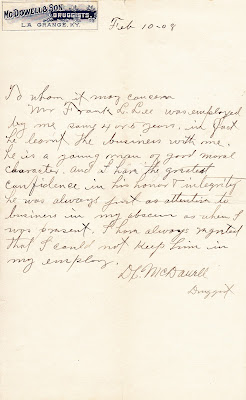 McDOWELL & SON
DRUGGISTS,
LA GRANGE, KY.
Feb 10-08
To whom it may concern
Mr Frank L. Lee was employed
by me some 4 or 5 years, in fact
he learnt the business with me.
he is a young man of good moral
character, and I have the greatest
confidence in his honor & integrity
he was always just as attentive to
business in my absence as when I
was present. I have always regreted
that I could not keep him in
my employ.
McDowell
Druggist